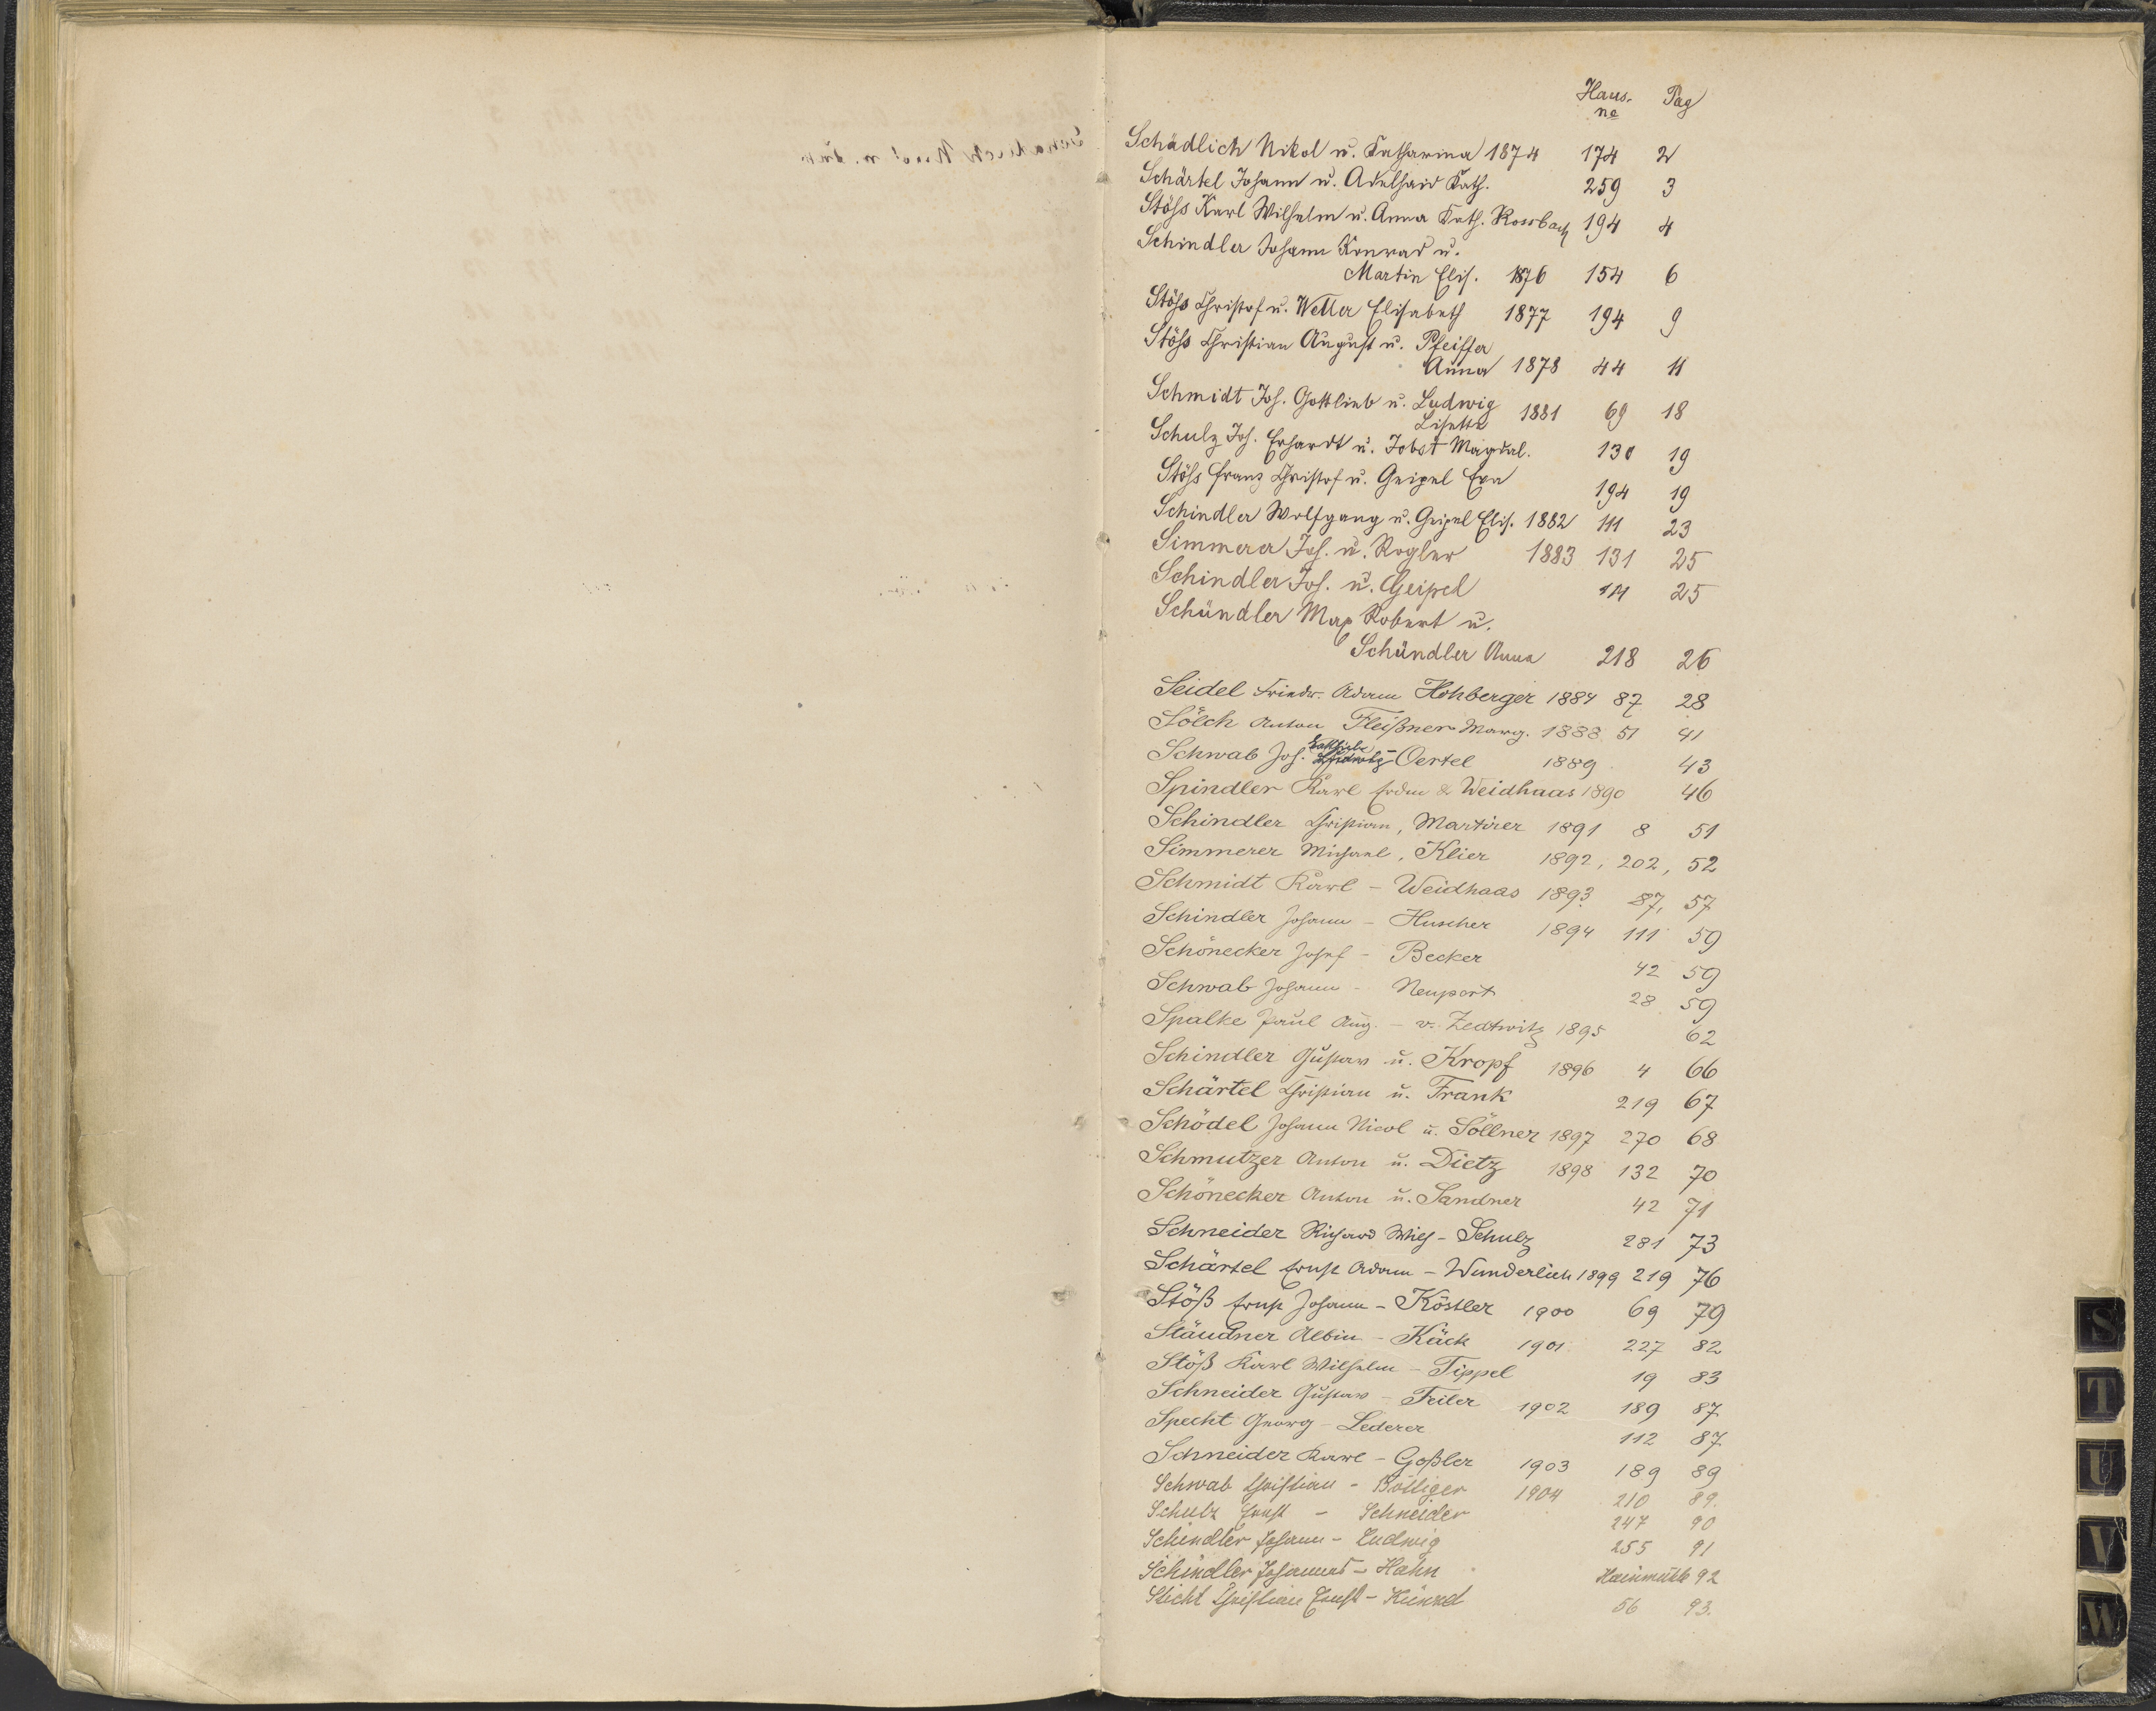 Haus- Pag
no
Schädlich Nikol u. Katharina 1874 174 2
Schärtel Johann u. Adelhaid Kath. 259 3
Stöss Karl Wilhelm u. Anna Kath. Rossbach 194 4
Schindler Johann Konrad u.
Martin Elis. 1876 154 6
Stöss Christof u. Wetter Elisabeth 1877 194 9
Stöss Christian August u. Pfeiffer
Anna 1878 44 11
Schmidt Joh. Gottlieb u. Ludwig 1881 69 18
Lisette
Schulz Joh. Erhardt u. Jobst Magdal. 130 19
Stöss Franz Christof u. Geipel Eva 194 19
Schindler Wolfgang u. Geipel Elis. 1882 111 23
Simmerer Joh. u. Rogler 1883 131 25
Schindler Joh. u. Geipel 111 25
Schündler Max Robert u.
Schündler Anna 218 26
Seidel Friedr. Adam Hohberger 1884 87 28
Sölch Anton Fleißner Marg. 1888 51 41
Schwab Joh. Gottlieb - Oertel 1889 43
Spindler Karl Erdm & Weidhaas 1890 46
Schindler Christian, Martirer 1891 8 51
Simmerer Michael, Klier 1892, 202, 52
Schmidt Karl - Weidhaas 1893 87, 57
Schindler Johann - Huscher 1894 111 59
Schönecker Josef - Becker 42 59
Schwab Johann - Neupert 28 59
Spalke Paul Aug. - v. Zedtwitz 1895 62
Schindler Gustav u. Kropf 1896 4 66
Schärtel Christian u. Frank 219 67
Schödel Johann Nicol u. Söllner 1897 270 68
Schmutzer Anton u. Dietz 1898 132 70
Schönecker Anton u. Sandner 42 71
Schneider Richard Wilh - Schulz 281 73
Schärtel Ernst Adam - Wunderlich 1899 219 76
Stöß Ernst Johann - Köstler 1900 69 79
Stäudner Albin - Käck 1901 227 82
Stöß Karl Wilhelm - Tippel 19 83
Schneider Gustav - Feiler 1902 189 87
Specht Georg - Lederer 112 87
Schneider Karl - Goßler 1903 189 89
Schwab Christian - Böttiger 1904 210 89.
Schulz Ernst - Schneider 247 90
Schindler Johann - Ludwig 255 91
Schindler Johannes - Hahn Hainmühle 92
Sticht Christian Ernst - Künzel 56 93.
S
T
U
V
W